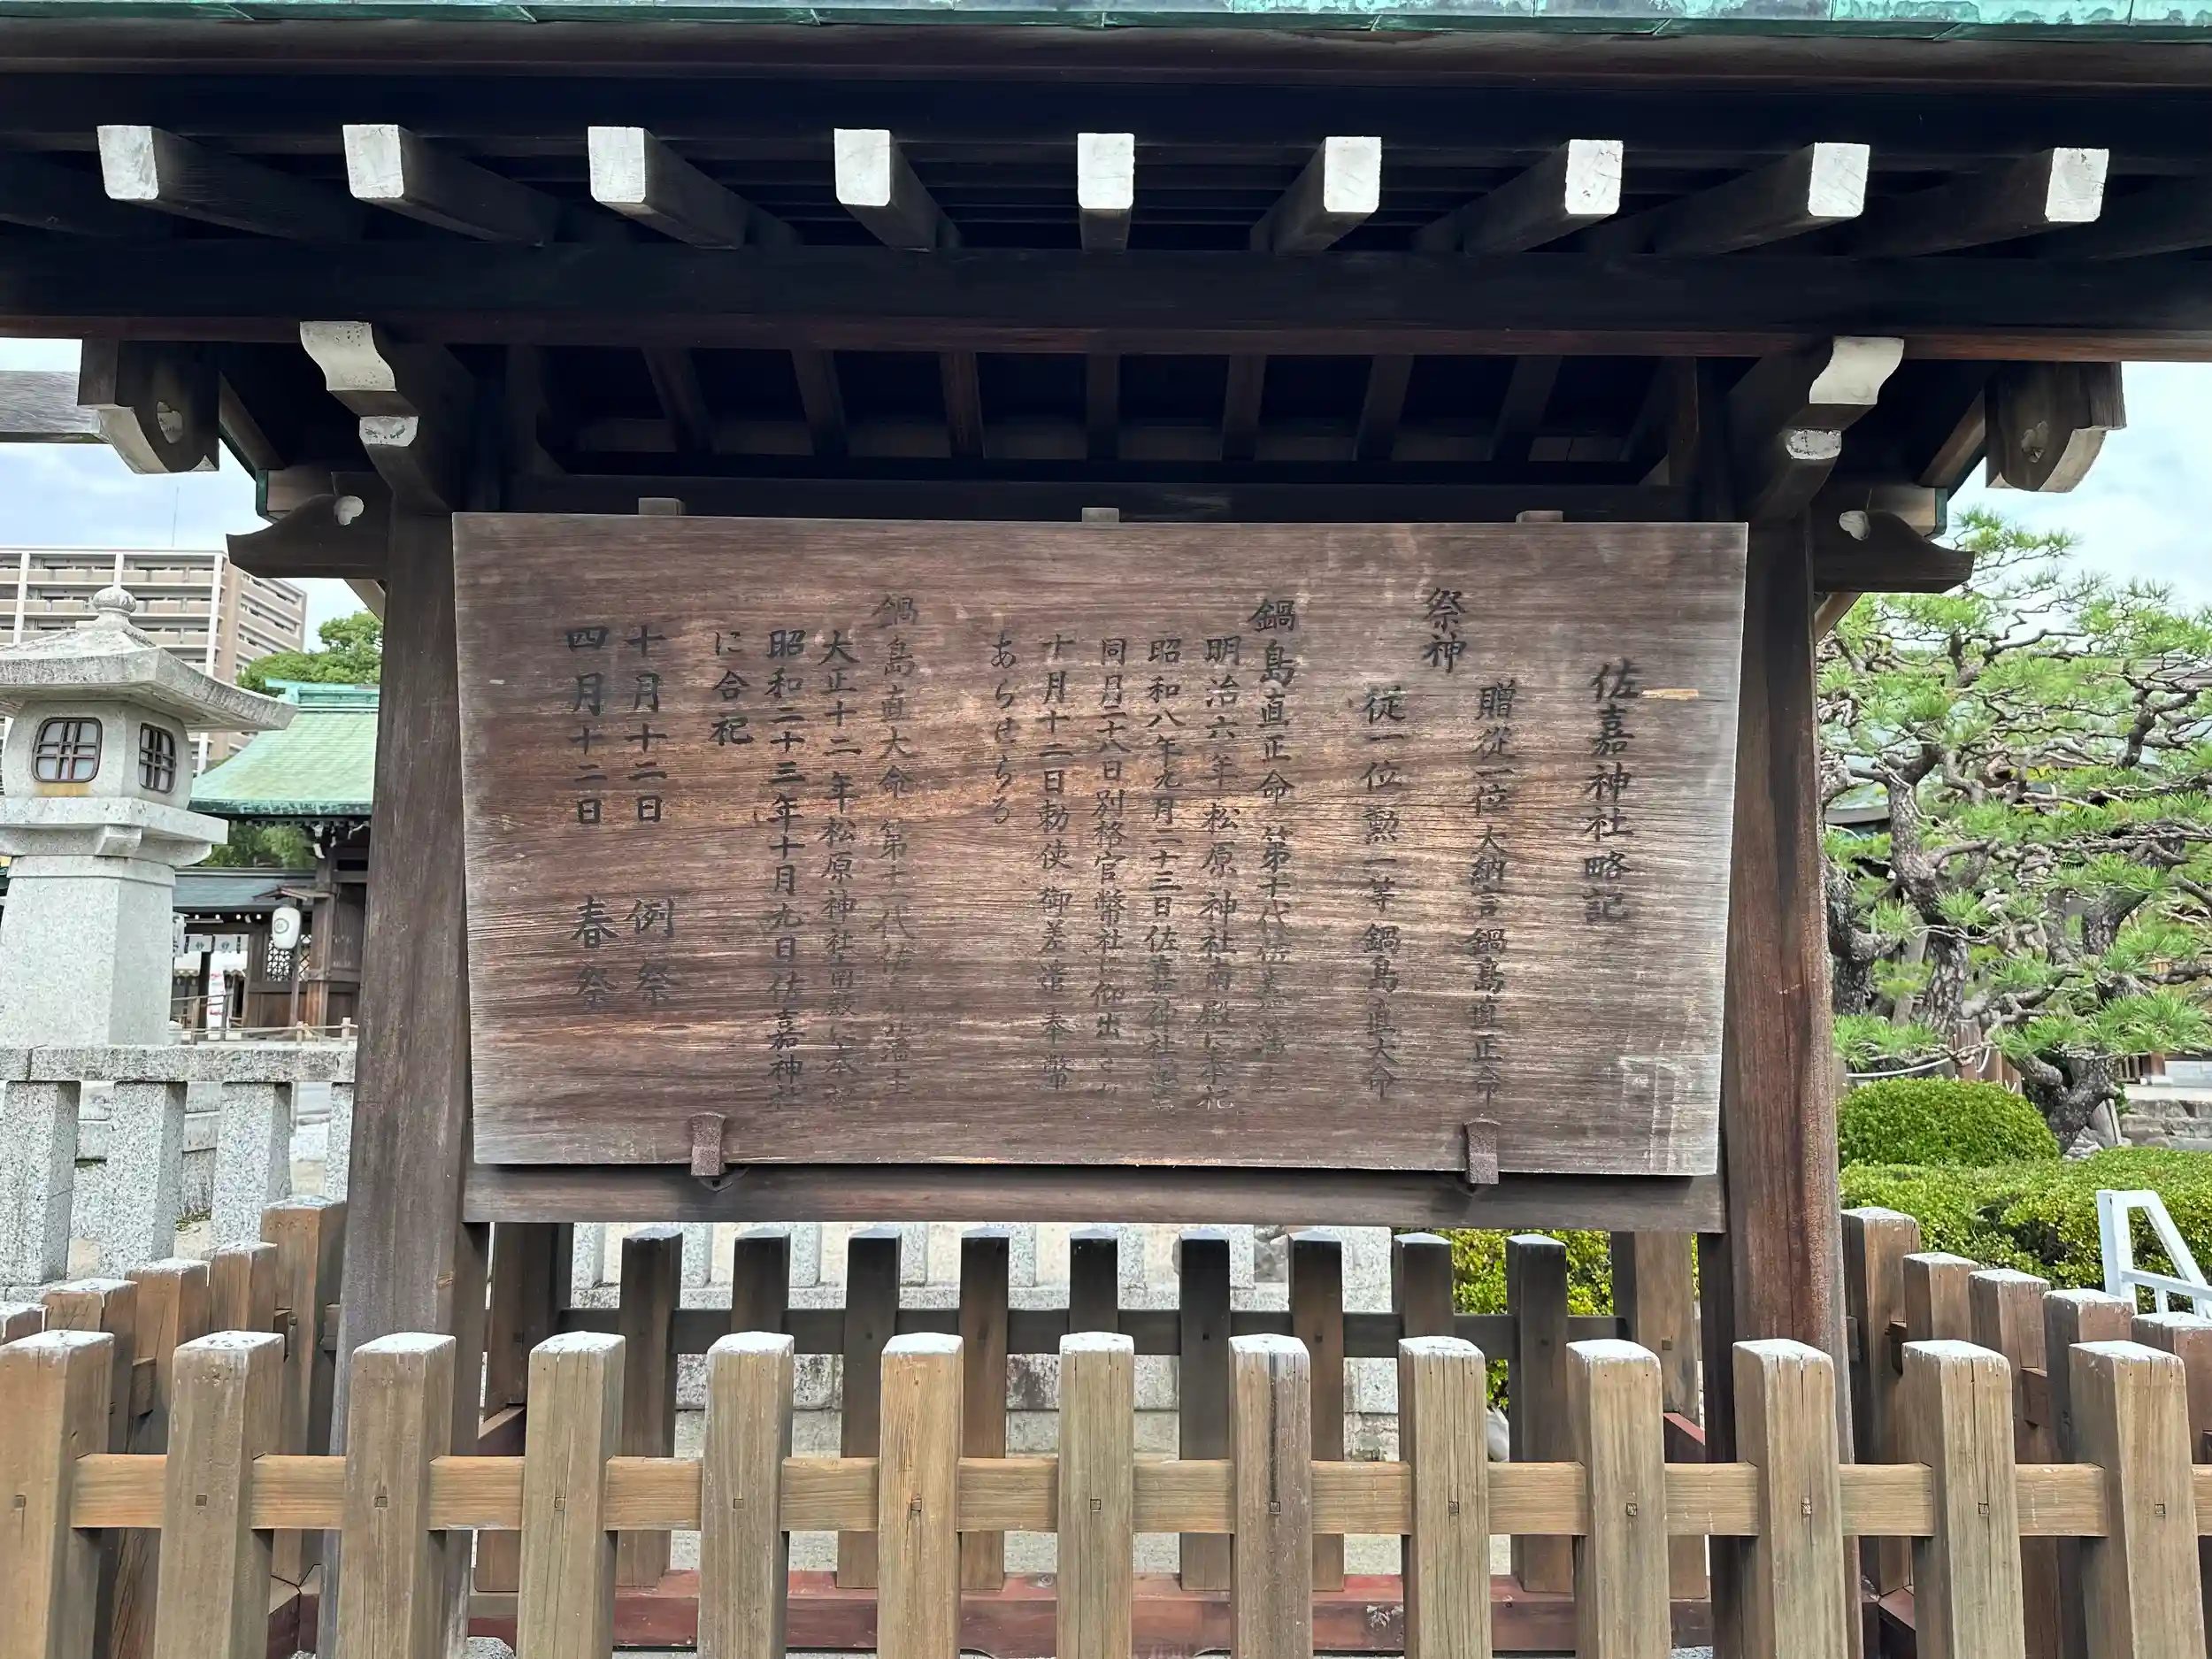 佐嘉神社略記
祭神
贈從一位大納言鍋島直正命
從一位勲一等鍋島直大命
鍋島直正命 第十代佐嘉藩主
明治六年松原神社南殿に奉祀
昭和八年九月二十三日佐嘉神社
同月二十八日別格官幣社に仰出され
十月十二日勅使御差遣奉幣
あらせらる
鍋島直大命 第十一代佐嘉藩主
大正十二年松原神社南殿に奉祀
昭和二十三年十月九日佐嘉神社
に合祀
十月十二日 例祭
四月十二日 春祭